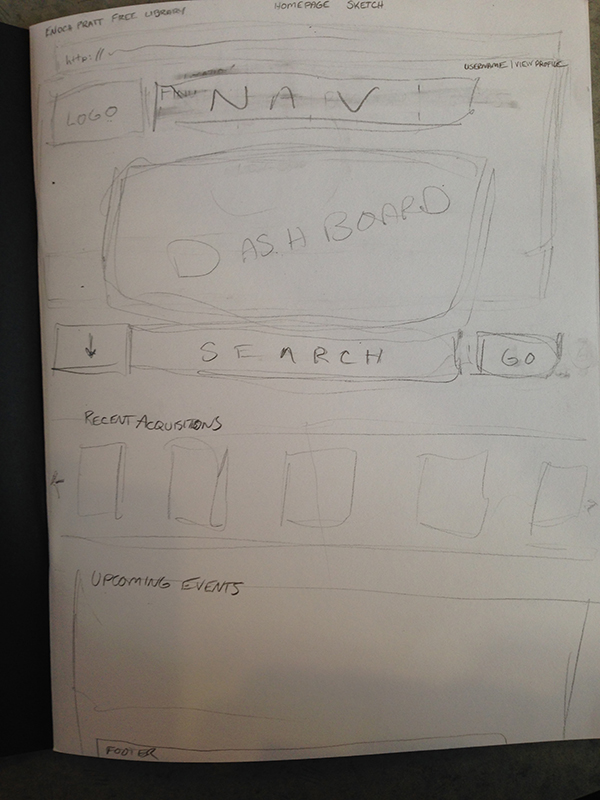 ENOCH PRATT FREE LIBRARY
HOMEPAGE SKETCH
http://
USERNAME | VIEW PROFILE
LOGO
NAV
DASHBOARD
SEARCH
GO
RECENT ACQUISITONS
UPCOMING EVENTS
FOOTER